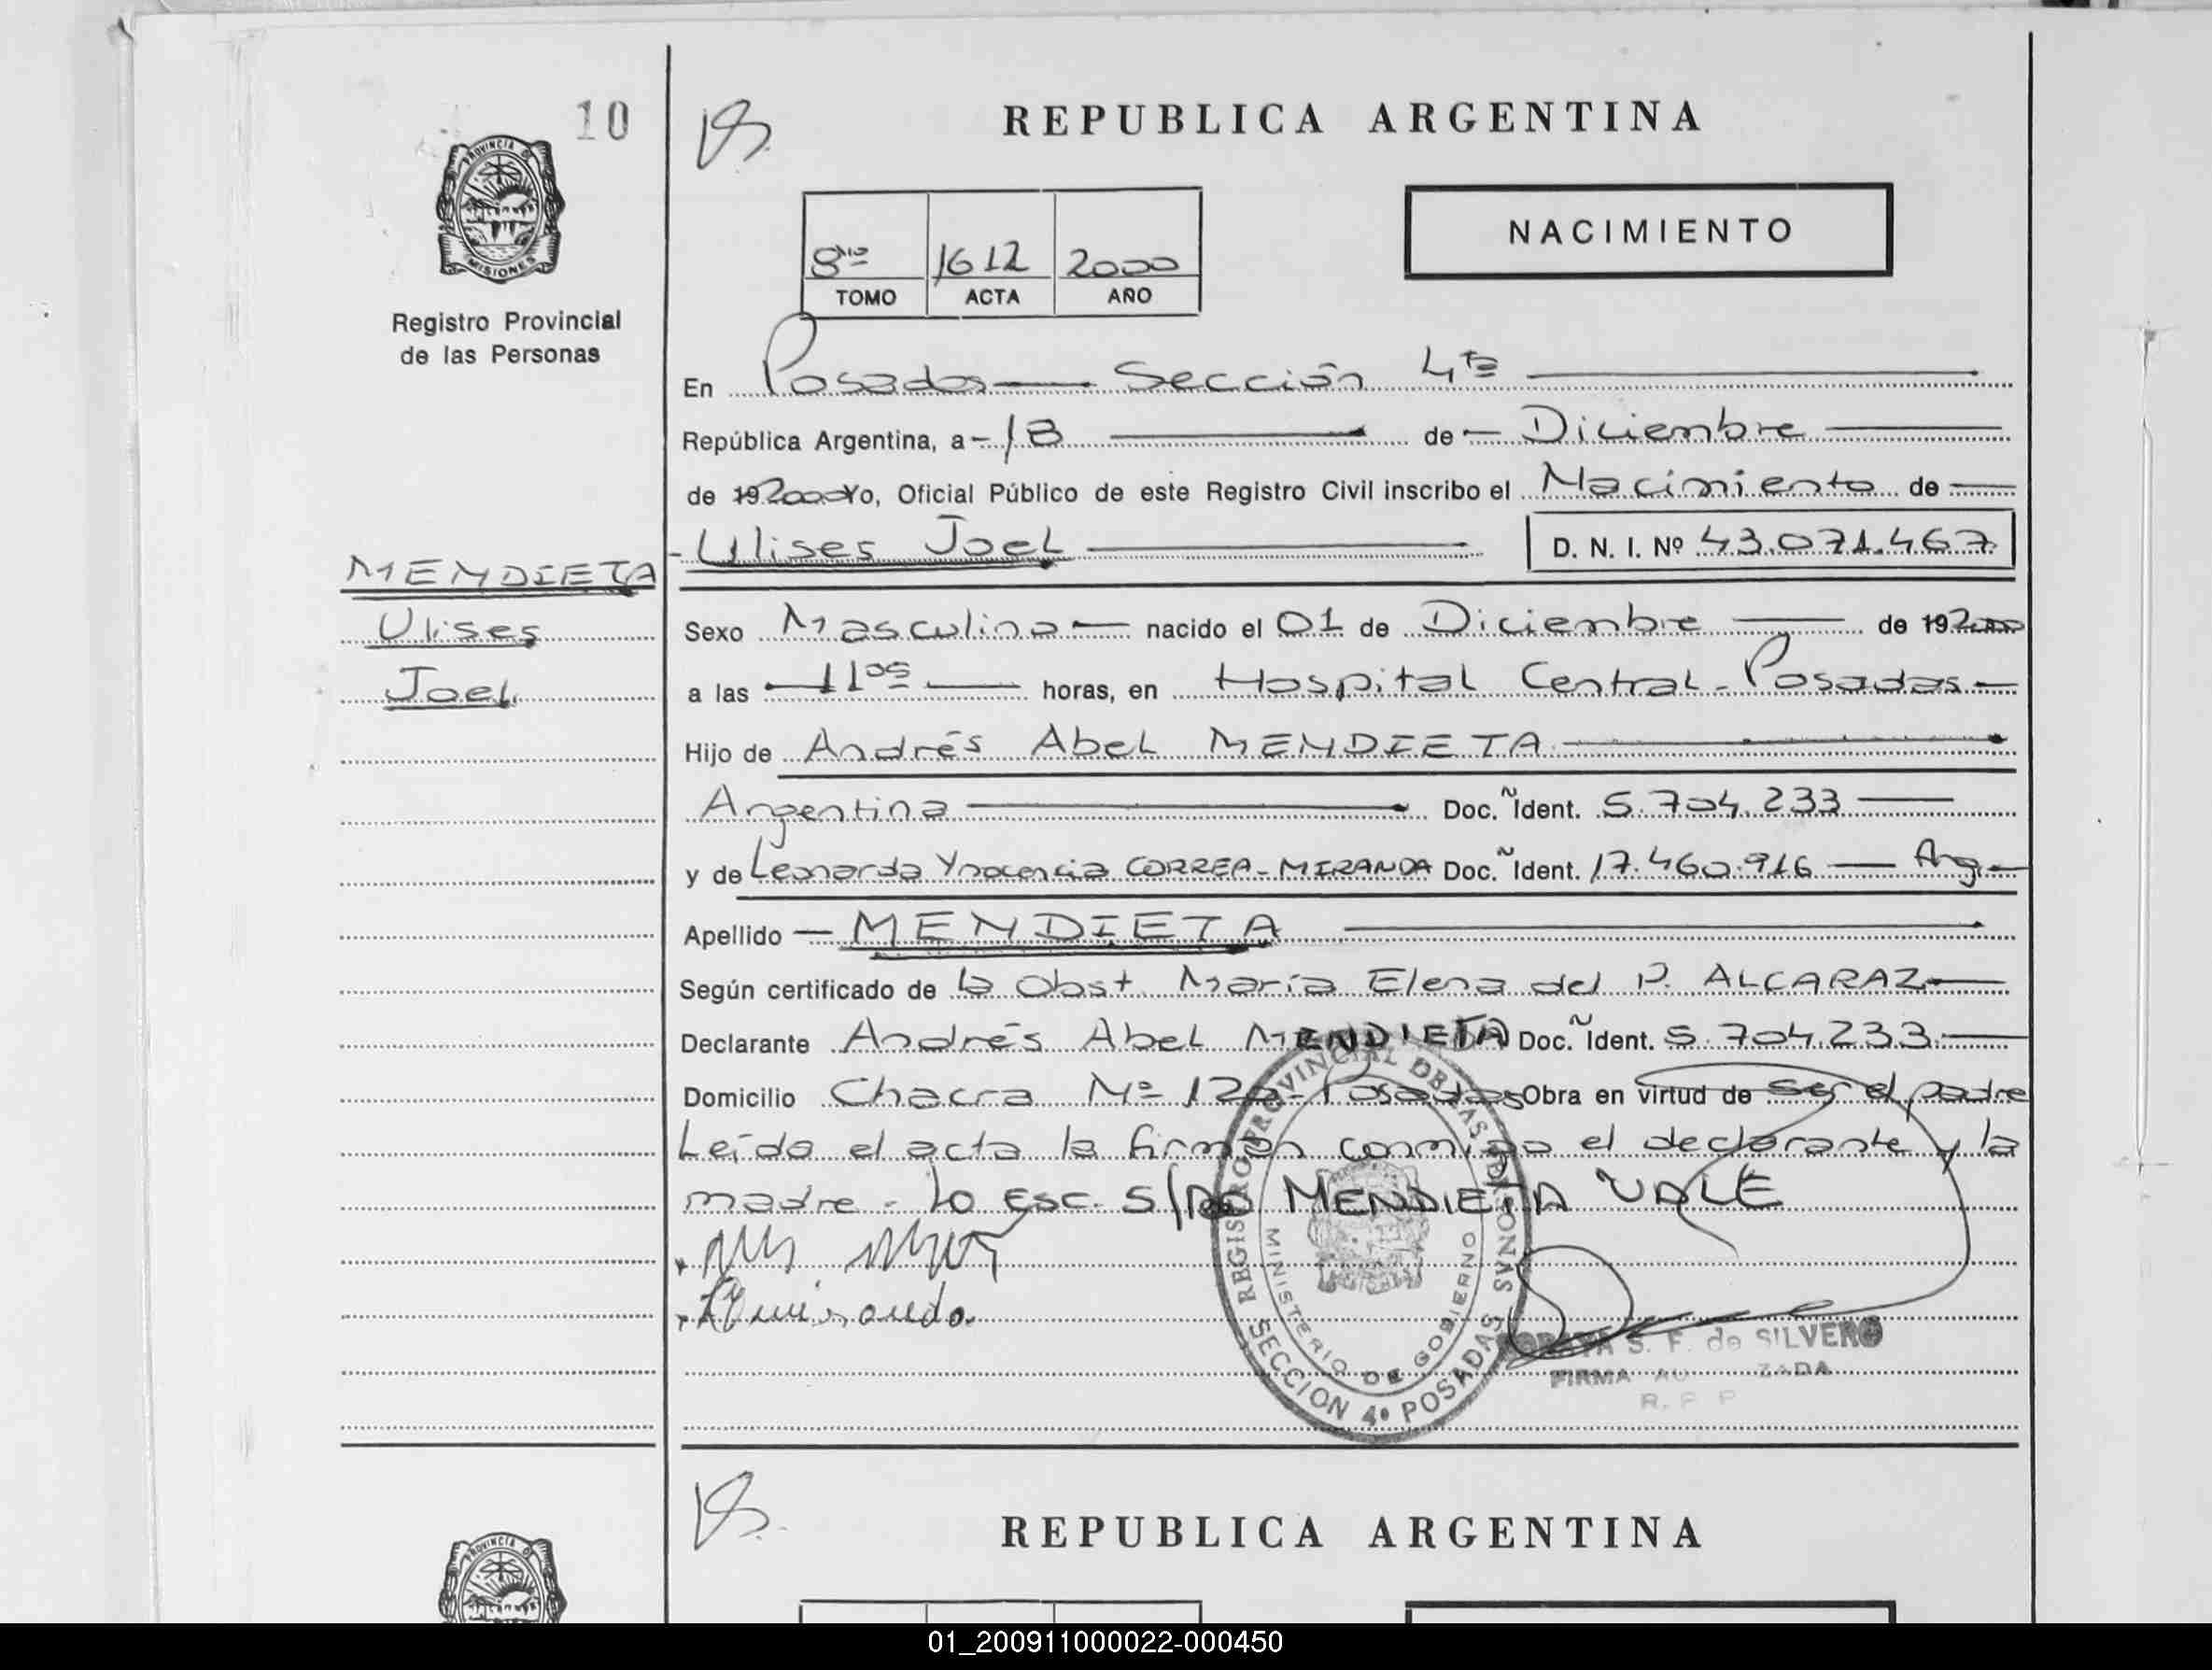 10
REPUBLICA ARGENTINA
PROVINCIA D
MISIONES
NACIMIENTO
8vo 1612 2000
TOMO ACTA AÑO
Registro Provincial
de las Personas
En Posadas — Sección 4ta
República Argentina, a 13 de Diciembre
de 19 2000 Yo, Oficial Público de este Registro Civil inscribo el Nacimiento de
Ulises Joel D. N. I. Nº 43.071.467
MENDIETA
Ulises
Joel
Sexo Masculino nacido el 01 de Diciembre de 19 2000
a las 11 05 horas, en Hospital Central - Posadas
Hijo de Andrés Abel MENDIETA
Argentina Doc. Ident. 5.704.233
y de Leonarda Ynocencia CORREA - MIRANDA Doc. Ident. 17.460.916 — Arg.
Apellido — MENDIETA
Según certificado de la Obst. María Elena del P. ALCARAZ
Declarante Andrés Abel MENDIETA Doc. Ident. 5.704.233
Domicilio Chacra Nº 122 - Posadas Obra en virtud de ser el padre
Leída el acta la firman conmigo el declarante y la
madre - Lo Esc. S/Rdo MENDIETA VALE
REGISTRO PROVINCIAL DE LAS PERSONAS
MINISTERIO DE GOBIERNO
SECCION 4º POSADAS
S. F. de SILVERO
FIRMA AU ZADA
R. P. P
REPUBLICA ARGENTINA
PROVINCIA D
01_200911000022-000450